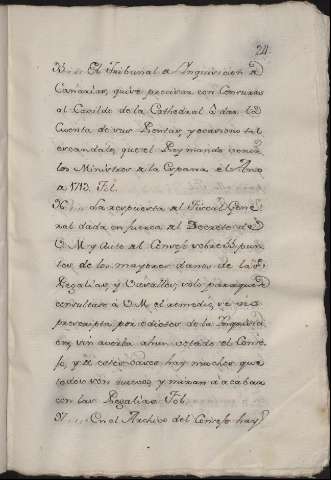 24
El Tribunal de Inquisicion de
Canarias, quiso precisar con Censuras
al Cavildo de la Cathedral à dar la
Cuenta de sus Rentas, y ocasionò tal
escandalo, que el Rey mandó venir
los Ministros a la España el Año
de 1713. Fol.
La respuesta del Fiscal Gene
ral dada en fuerza del Decreto de
S. M. y Auto del Consejo sobre puntos
tos de los mayores danos de las
Regalias, y Vasallos, solo para que se
consultase à S. M. el remedio, se vió
proscripta por edictos de la Inquisici
on, sin averla aún votado el Conse
jo, y de estos casos hay muchos que
todos son nuevos, y miran à acabar
con las Regalias Fol.
En el Archivo del Consejo hay